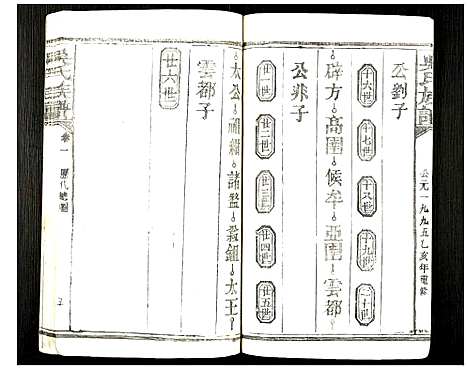 吳氏族譜
公元一九九五乙亥年重修
公劉子
十六世 十七世 十八世 十九世 二十世
辟方 高圉 侯牟 亞圉 雲都
公非子
廿一世 廿二世 廿三世 廿四世 廿五世
太公 祖紺 諸盩 叔鈕 太王
雲都子
廿六世
吳氏族譜
卷一
歷代總圖